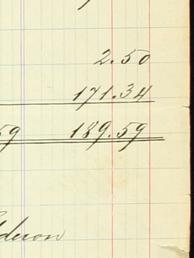 2.50
171.34
59 189.59
derson